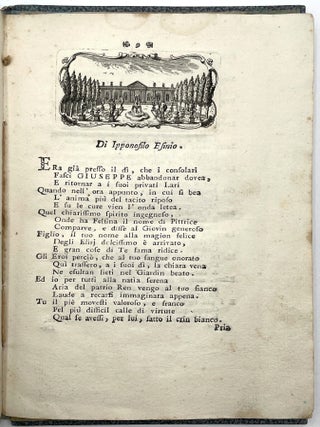 Di Ipponofilo Esinio.
Era già presso il dì, che i consolari
Fasci GIUSEPPE abbandonar dovea,
E ritornar a i suoi privati Lari
Quando nell' ora appunto, in cui si bea
L' anima più del tacito riposo
E fu le cure vien l' onda letea,
Quel chiarissimo spirito ingegnoso,
Onde ha Felsina il nome di Pittrice
Comparve, e disse al Giovin generoso
Figlio, il tuo nome alla magion felice
Degli Elisj dolcissimo è arrivato,
E gran cose di Te fama ridice.
Gli Eroi perciò, che al tuo sangue onorato
Qui trassero, a i suoi dì, la chiara vena
Ne esultan lieti nel Giardin beato.
Ed io per tutti alla natia serena
Aria del patrio Ren vengo al tuo fianco
Laude a recarti immaginata appena.
Tu il piè movesti valoroso, e franco
Pel più difficil calle di virtute
Qual se avessi, per lui, fatto il crin bianco.
Pria